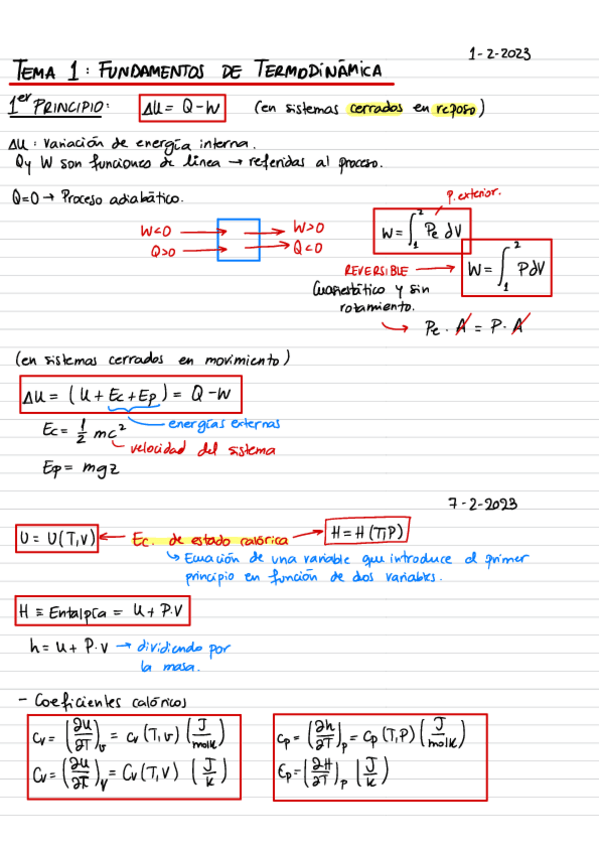 1-2-2023
TEMA 1: FUNDAMENTOS DE TERMODINÁMICA
1er PRINCIPIO: ΔU = Q - W (en sistemas cerrados en reposo)
ΔU: Variación de energía interna.
Q y W son funciones de línea → referidas al proceso.
Q=0 → Proceso adiabático.
P. exterior.
W<0 → → W>0
Q>0 → → Q<0
W = ∫₁² Pe dV
REVERSIBLE → W = ∫₁² PdV
Cuasiestático y sin
rozamiento.
→ Pe · A = P · A
(en sistemas cerrados en movimiento)
ΔU = (U + Ec + Ep) = Q - W
energías externas
Ec = 1/2 mc²
velocidad del sistema
Ep = mgz
7-2-2023
U = U(T,v) ← Ec. de estado calórica → H = H(T,P)
↳ Ecuación de una variable que introduce el primer
principio en función de dos variables.
H ≡ Entalpía = U + P.V
h = u + P.v → dividiendo por
la masa.
- Coeficientes calóricos
cv = (∂u/∂T)v = cv (T,v) (J/molK)
Cv = (∂U/∂T)V = Cv (T,V) (J/K)
cp = (∂h/∂T)p = cp (T,P) (J/molK)
Cp = (∂H/∂T)p (J/K)